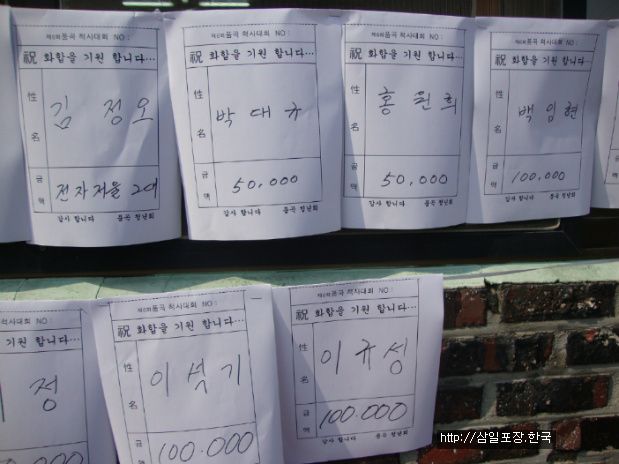 제6회품곡 척사대회 NO :
祝 화합을 기원 합니다...
성명 김 정 오
금액 전자저울 2대
감사 합니다 품곡 청년회
제6회품곡 척사대회 NO :
祝 화합을 기원 합니다...
성명 박 대 규
금액 50,000
감사 합니다 품곡 청년회
제6회품곡 척사대회 NO :
祝 화합을 기원 합니다...
성명 홍 원 희
금액 50,000
감사 합니다 품곡 청년회
제6회품곡 척사대회 NO :
祝 화합을 기원 합니다...
성명 백 임 현
금액 100,000
감사 합니다 품곡 청년회
척사대회 NO :
기원 합니다...
정
제6회품곡 척사대회 NO :
祝 화합을 기원 합니다...
성명 이 석 기
금액 100.000
제6회품곡 척사대회 NO :
祝 화합을 기원 합니다...
성명 이 규 성
금액 100.000
감사 합니다 품곡 청년회
http://삼일포장.한국